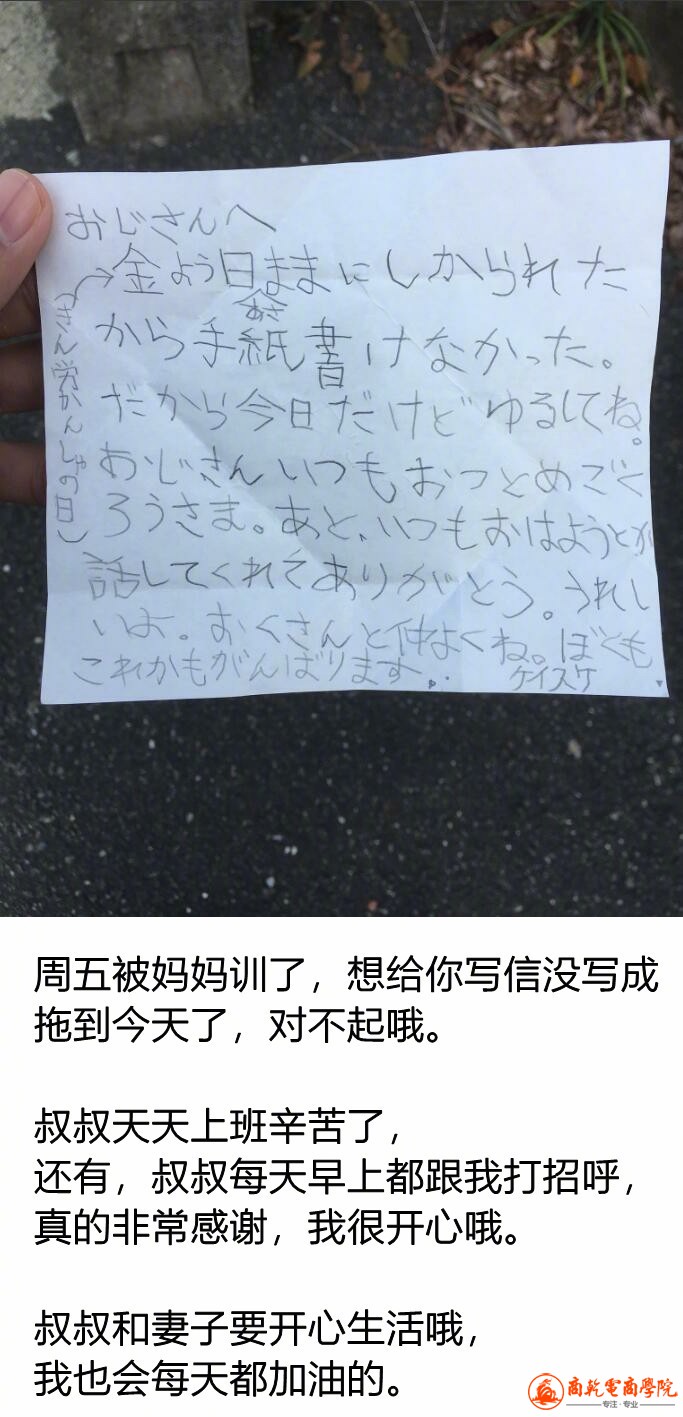 おじさんへ
金よう日ままにしかられた
あさ
から手紙書けなかった。
きん労かんしゃの日
だから今日だけどゆるしてね。
おじさんいつもおつとめごく
ろうさま。あと、いつもおはようとか
話してくれてありがとう。うれし
いよ。おくさんと仲よくね。ぼくも
これかもがんばります。
ケイスケ
周五被妈妈训了，想给你写信没写成
拖到今天了，对不起哦。
叔叔天天上班辛苦了，
还有，叔叔每天早上都跟我打招呼，
真的非常感谢，我很开心哦。
叔叔和妻子要开心生活哦，
我也会每天都加油的。
商乾電商學院
专注·专业